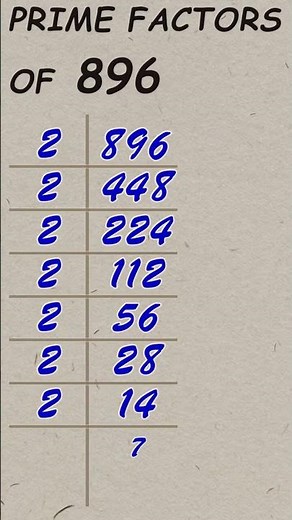 PRIME FACTORS
OF 896
2 896
2 448
2 224
2 112
2 56
2 28
2 14
7